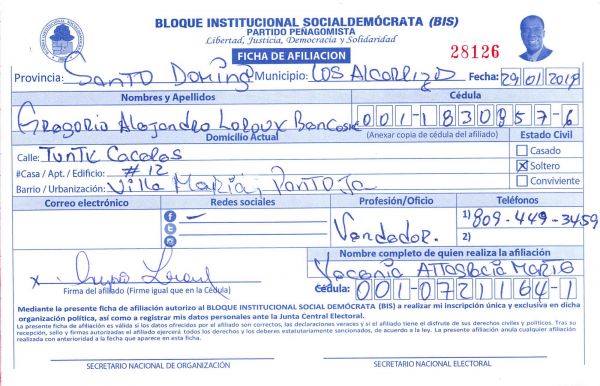 BLOQUE INSTITUCIONAL SOCIALDEMÓCRATA (BIS)
PARTIDO PEÑAGOMISTA
Libertad, Justicia, Democracia y Solidaridad
FICHA DE AFILIACION
28126
Provincia: Santo Domingo Municipio: Los Alcarrizos Fecha: 29/01/2019
Nombres y Apellidos Cédula
Gregorio Alejandro 001-1830957-6
Domicilio Actual (Anexar copia de cédula del afiliado) Estado Civil
Calle: Caceres Casado
#Casa / Apt. / Edificio: #12 X Soltero
Barrio / Urbanización: Villa María, Pantoja Conviviente
Correo electrónico Redes sociales Profesión/Oficio Teléfonos
Vendedor. 1) 809-449-3459
2)
Nombre completo de quien realiza la afiliación
Yocania Marte
x
Firma del afiliado (Firme igual que en la Cédula) Cédula: 001-0721164-1
Mediante la presente ficha de afiliación autorizo al BLOQUE INSTITUCIONAL SOCIAL DEMÓCRATA (BIS) a realizar mi inscripción única y exclusiva en dicha
organización política, así como a registrar mis datos personales ante la Junta Central Electoral.
La presente ficha de afiliación es válida si los datos ofrecidos por el afiliado son correctos, las declaraciones veraces y si el afiliado tiene el disfrute de sus derechos civiles y políticos. Tras su
recepción, sello y firmas autorizadas el afiliado ejercerá todos los derechos y los deberes estatutariamente sancionados, de acuerdo a le ley. La presente afiliación anula cualquier afiliación
realizada con anterioridad a la fecha que aparece en esta ficha.
SECRETARIO NACIONAL DE ORGANIZACIÓN SECRETARIO NACIONAL ELECTORAL